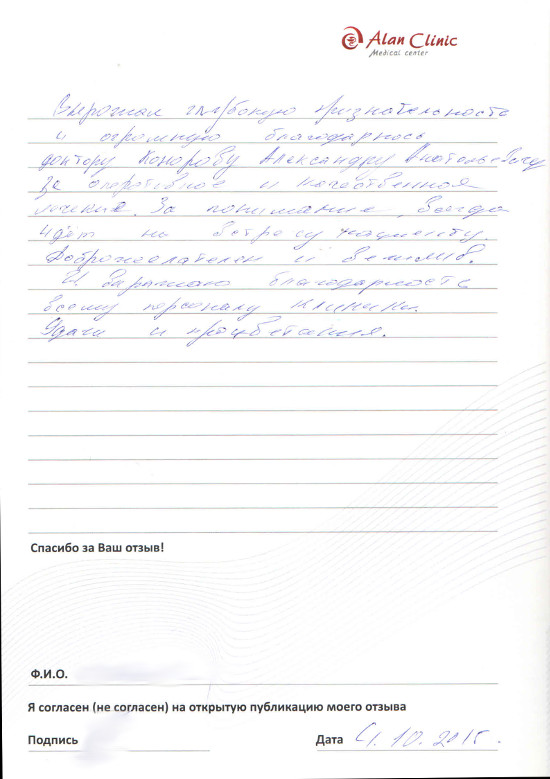 Alan Clinic
Medical center
глубокую признательность
и огромную благодарнось
доктору Александру Анатольевичу
за оперативное и
лечение. За понимание, всегда
идёт на встречу пациенту
Доброжелателен и вежлив.
И выражаю благодарность
всему персоналу клиники.
Удачи и процветания.
Спасибо за Ваш отзыв!
Ф.И.О.
Я согласен (не согласен) на открытую публикацию моего отзыва
Подпись
Дата 10. 2015г.